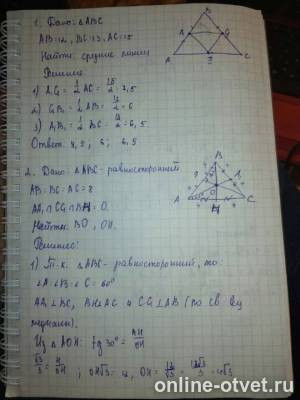 1. Дано: △ABC
AB=12, BC=13, AC=15
Найти: средние линии
Решение
1) A₁C₁ = 1/2 AC = 15/2 = 7,5
2) C₁B₁ = 1/2 AB = 12/2 = 6
3) A₁B₁ = 1/2 BC = 13/2 = 6,5
Ответ: 7,5; 6; 6,5
B
A C
2. Дано: △ABC - равносторонний
AB=BC=AC=
AA₁ ∩ CC₁ ∩ BH = O.
Найти: BO, OH.
Решение:
B
A H C
1) Т.к. △ABC - равносторонний, то:
∠A=∠B=∠C=60°
AA₁⊥BC, BH⊥AC и CC₁⊥AB (по св.
медианы).
Из △AOH: tg 30° =
online-otvet.ru